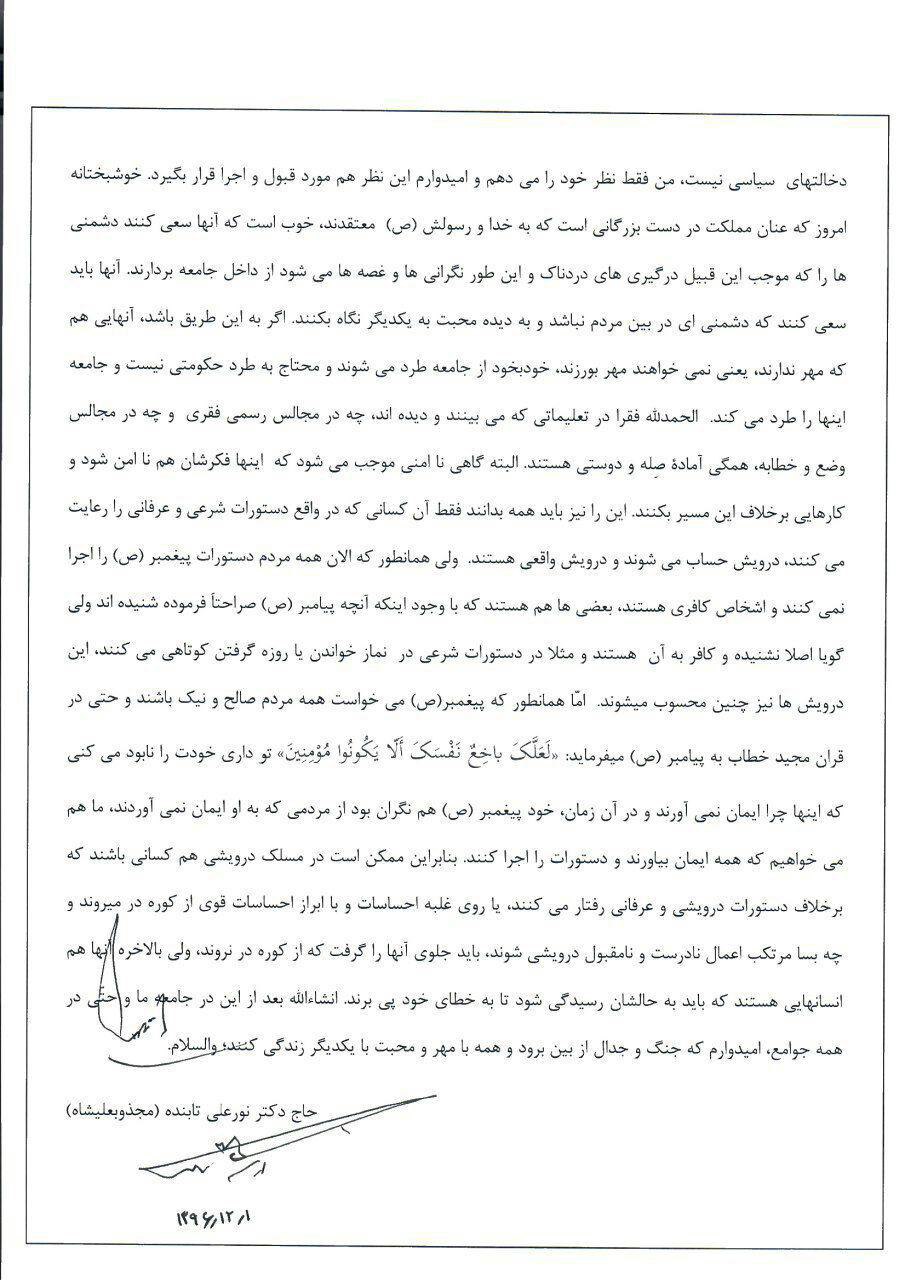 دخالتهای سیاسی نیست، من فقط نظر خود را می دهم و امیدوارم این نظر هم مورد قبول و اجرا قرار بگیرد. خوشبختانه
امروز که عنان مملکت در دست بزرگانی است که به خدا و رسولش (ص) معتقدند، خوب است که آنها سعی کنند دشمنی
ها را که موجب این قبیل درگیری های دردناک و این طور نگرانی ها و غصه ها می شود از داخل جامعه بردارند. آنها باید
سعی کنند که دشمنی ای در بین مردم نباشد و به دیده محبت به یکدیگر نگاه بکنند. اگر به این طریق باشد، آنهایی هم
که مهر ندارند، یعنی نمی خواهند مهر بورزند، خودبخود از جامعه طرد می شوند و محتاج به طرد حکومتی نیست و جامعه
اینها را طرد می کند. الحمدلله فقرا در تعلیماتی که می بینند و دیده اند، چه در مجالس رسمی فقری و چه در مجالس
وضع و خطابه، همگی آمادهٔ صِله و دوستی هستند. البته گاهی نا امنی موجب می شود که اینها فکرشان هم نا امن شود و
کارهایی برخلاف این مسیر بکنند. این را نیز باید همه بدانند فقط آن کسانی که در واقع دستورات شرعی و عرفانی را رعایت
می کنند، درویش حساب می شوند و درویش واقعی هستند. ولی همانطور که الان همه مردم دستورات پیغمبر (ص) را اجرا
نمی کنند و اشخاص کافری هستند، بعضی ها هم هستند که با وجود اینکه آنچه پیامبر (ص) صراحتاً فرموده شنیده اند ولی
گویا اصلا نشنیده و کافر به آن هستند و مثلا در دستورات شرعی در نماز خواندن یا روزه گرفتن کوتاهی می کنند، این
درویش ها نیز چنین محسوب میشوند. امّا همانطور که پیغمبر(ص) می خواست همه مردم صالح و نیک باشند و حتی در
قران مجید خطاب به پیامبر (ص) میفرماید: «لَعَلَّکَ باخِعٌ نَفْسَکَ أَلّا یَکُونُوا مُوْمِنِینَ» تو داری خودت را نابود می کنی
که اینها چرا ایمان نمی آورند و در آن زمان، خود پیغمبر (ص) هم نگران بود از مردمی که به او ایمان نمی آوردند، ما هم
می خواهیم که همه ایمان بیاورند و دستورات را اجرا کنند. بنابراین ممکن است در مسلک درویشی هم کسانی باشند که
برخلاف دستورات درویشی و عرفانی رفتار می کنند، یا روی غلبه احساسات و با ابراز احساسات قوی از کوره در میروند و
چه بسا مرتکب اعمال نادرست و نامقبول درویشی شوند، باید جلوی آنها را گرفت که از کوره در نروند، ولی بالاخره آنها هم
انسانهایی هستند که باید به حالشان رسیدگی شود تا به خطای خود پی برند. انشاءالله بعد از این در جامعه ما و حتّی در
همه جوامع، امیدوارم که جنگ و جدال از بین برود و همه با مهر و محبت با یکدیگر زندگی کنند؛ والسلام.
حاج دکتر نورعلی تابنده (مجذوبعلیشاه)
۱۳۹۶٫۱۲٫۱